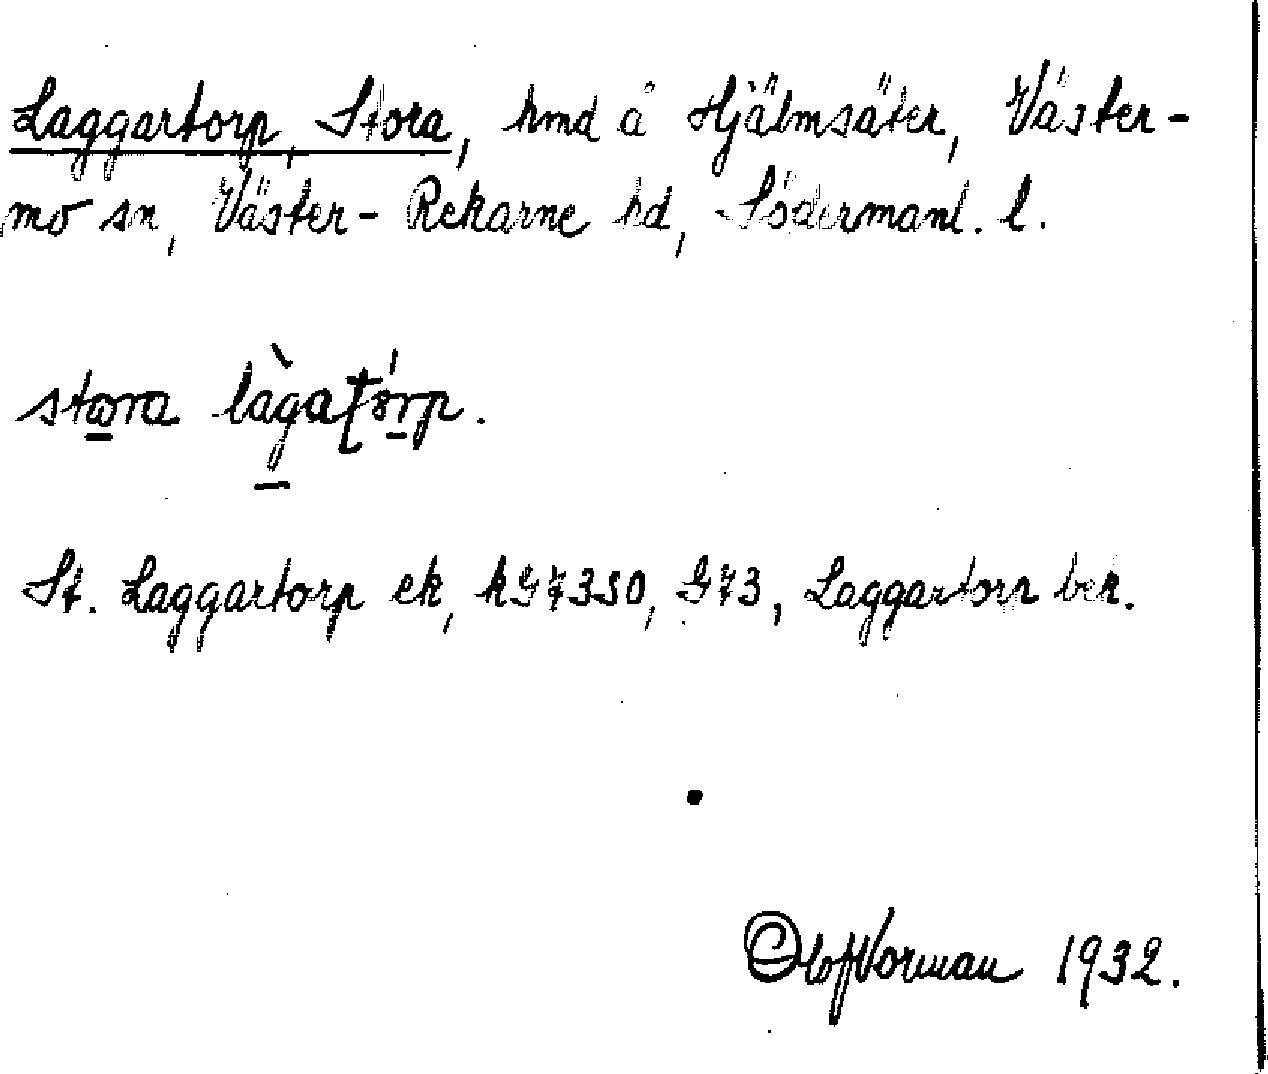 Laggartorp, Stora, hmd å Hjälmsäter, Väster-
mo sn, Väster-Rekarne hd, Södermanl. l.
stora làgatórp.
St. Laggartorp ek, kG7330, G73, Laggartorp bek.
Olof Norman 1932.